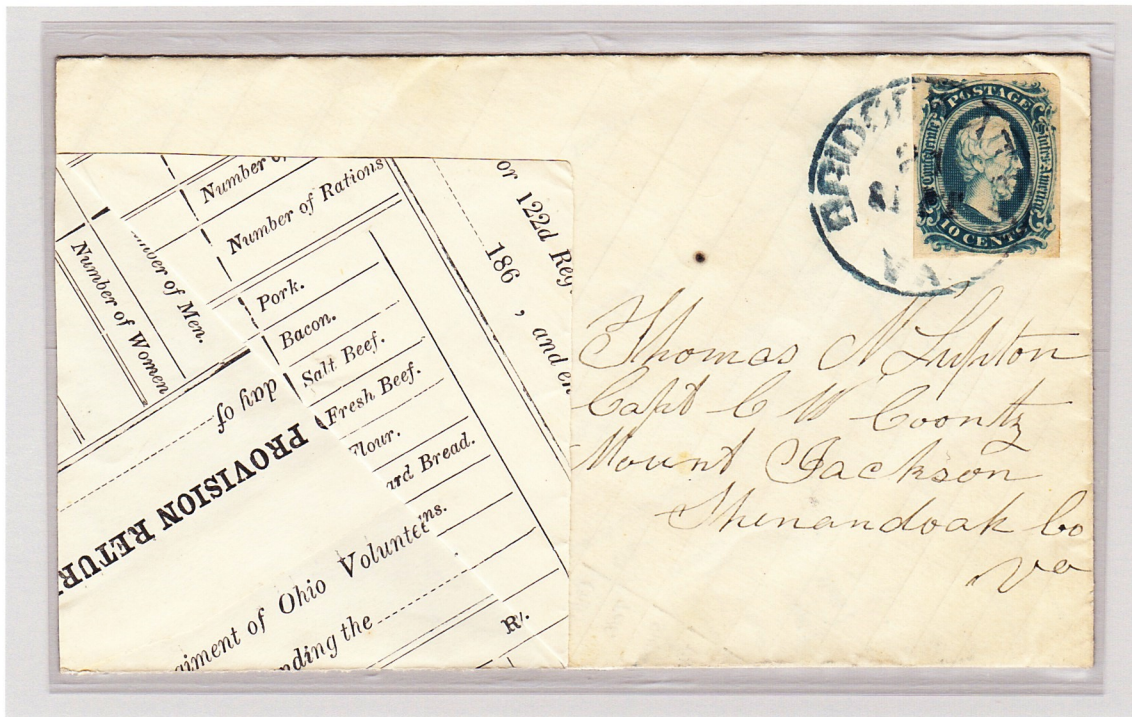 BRIDGEWATER
VA
POSTAGE
Confederate States America
10 CENTS
Thomas N Lupton
Capt C W Coontz
Mount Jackson
Shenandoah Co
Va
Number of
Number of Rations
Number of Men.
Number of Women
Pork.
Bacon.
Salt Beef.
Fresh Beef.
Flour.
ard Bread.
ns.
or 122d Reg.
186 , and en
day of
PROVISION RETUR
giment of Ohio Voluntee
nding the